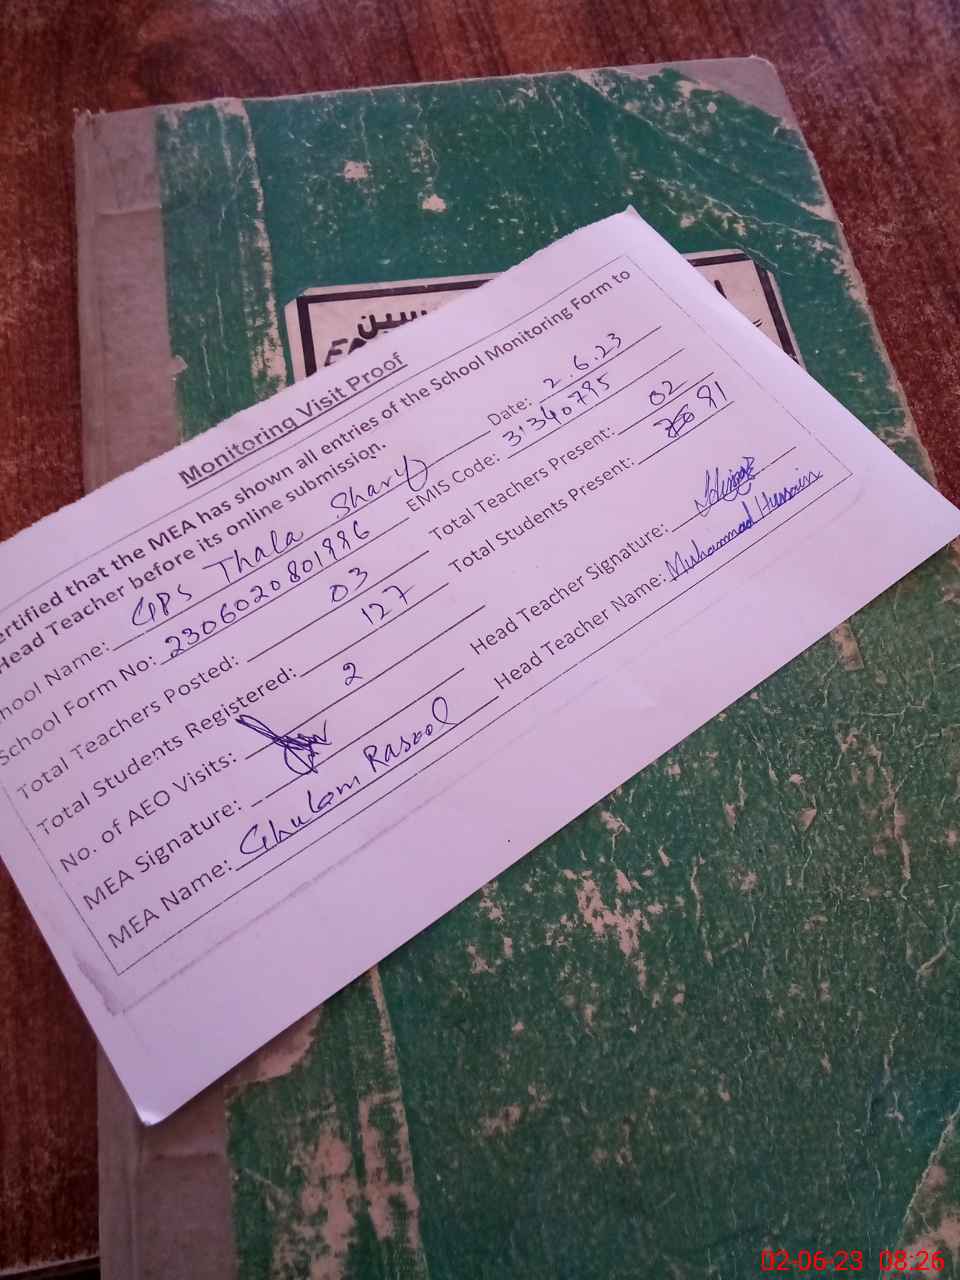 Monitoring Visit Proof
ertified that the MEA has shown all entries of the School Monitoring Form to
Head Teacher before its online submission.
hool Name: GPS Thala Sharif Date: 2.6.23
School Form No: EMIS Code: 31340795
Total Teachers Posted: 03 Total Teachers Present: 02
Total Students Registered: 127 Total Students Present:
No. of AEO Visits: 2
MEA Signature: Head Teacher Signature:
MEA Name: Ghulam Rasool Head Teacher Name: Muhammad Hussain
02-06-23 08:26